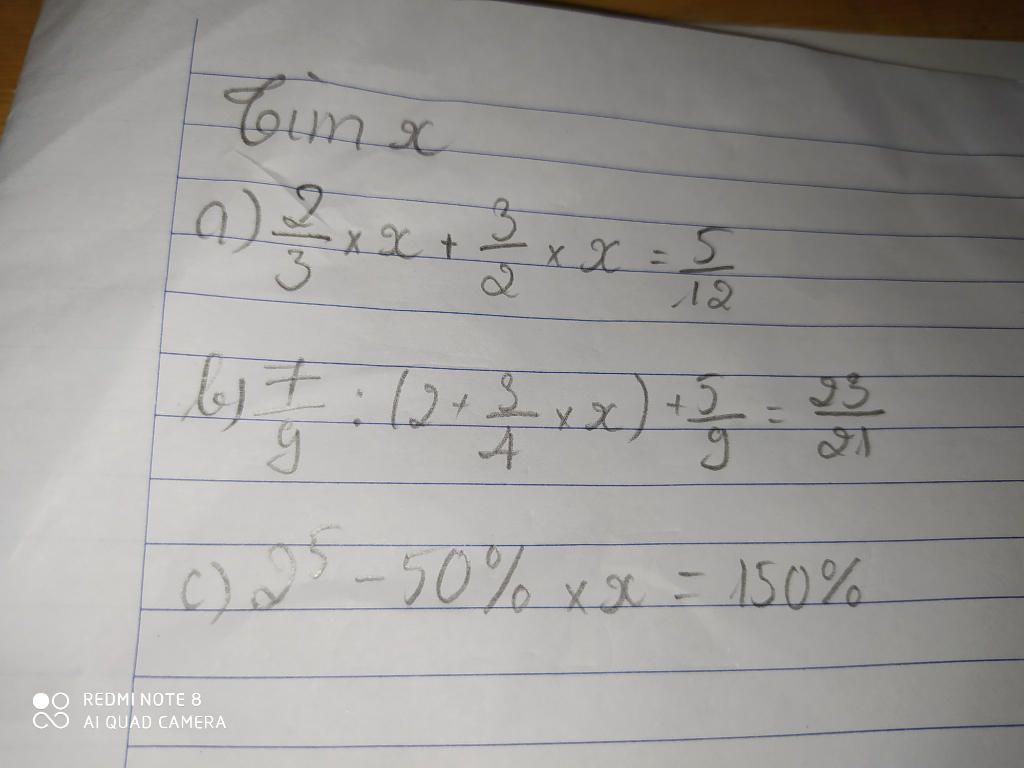 Tìm x
a) 2/3 × x + 3/2 × x = 5/12
b) 7/9 : (2 + 3/4 × x) + 5/9 = 23/21
c) 2⁵ - 50% × x = 150%
REDMI NOTE 8
AI QUAD CAMERA